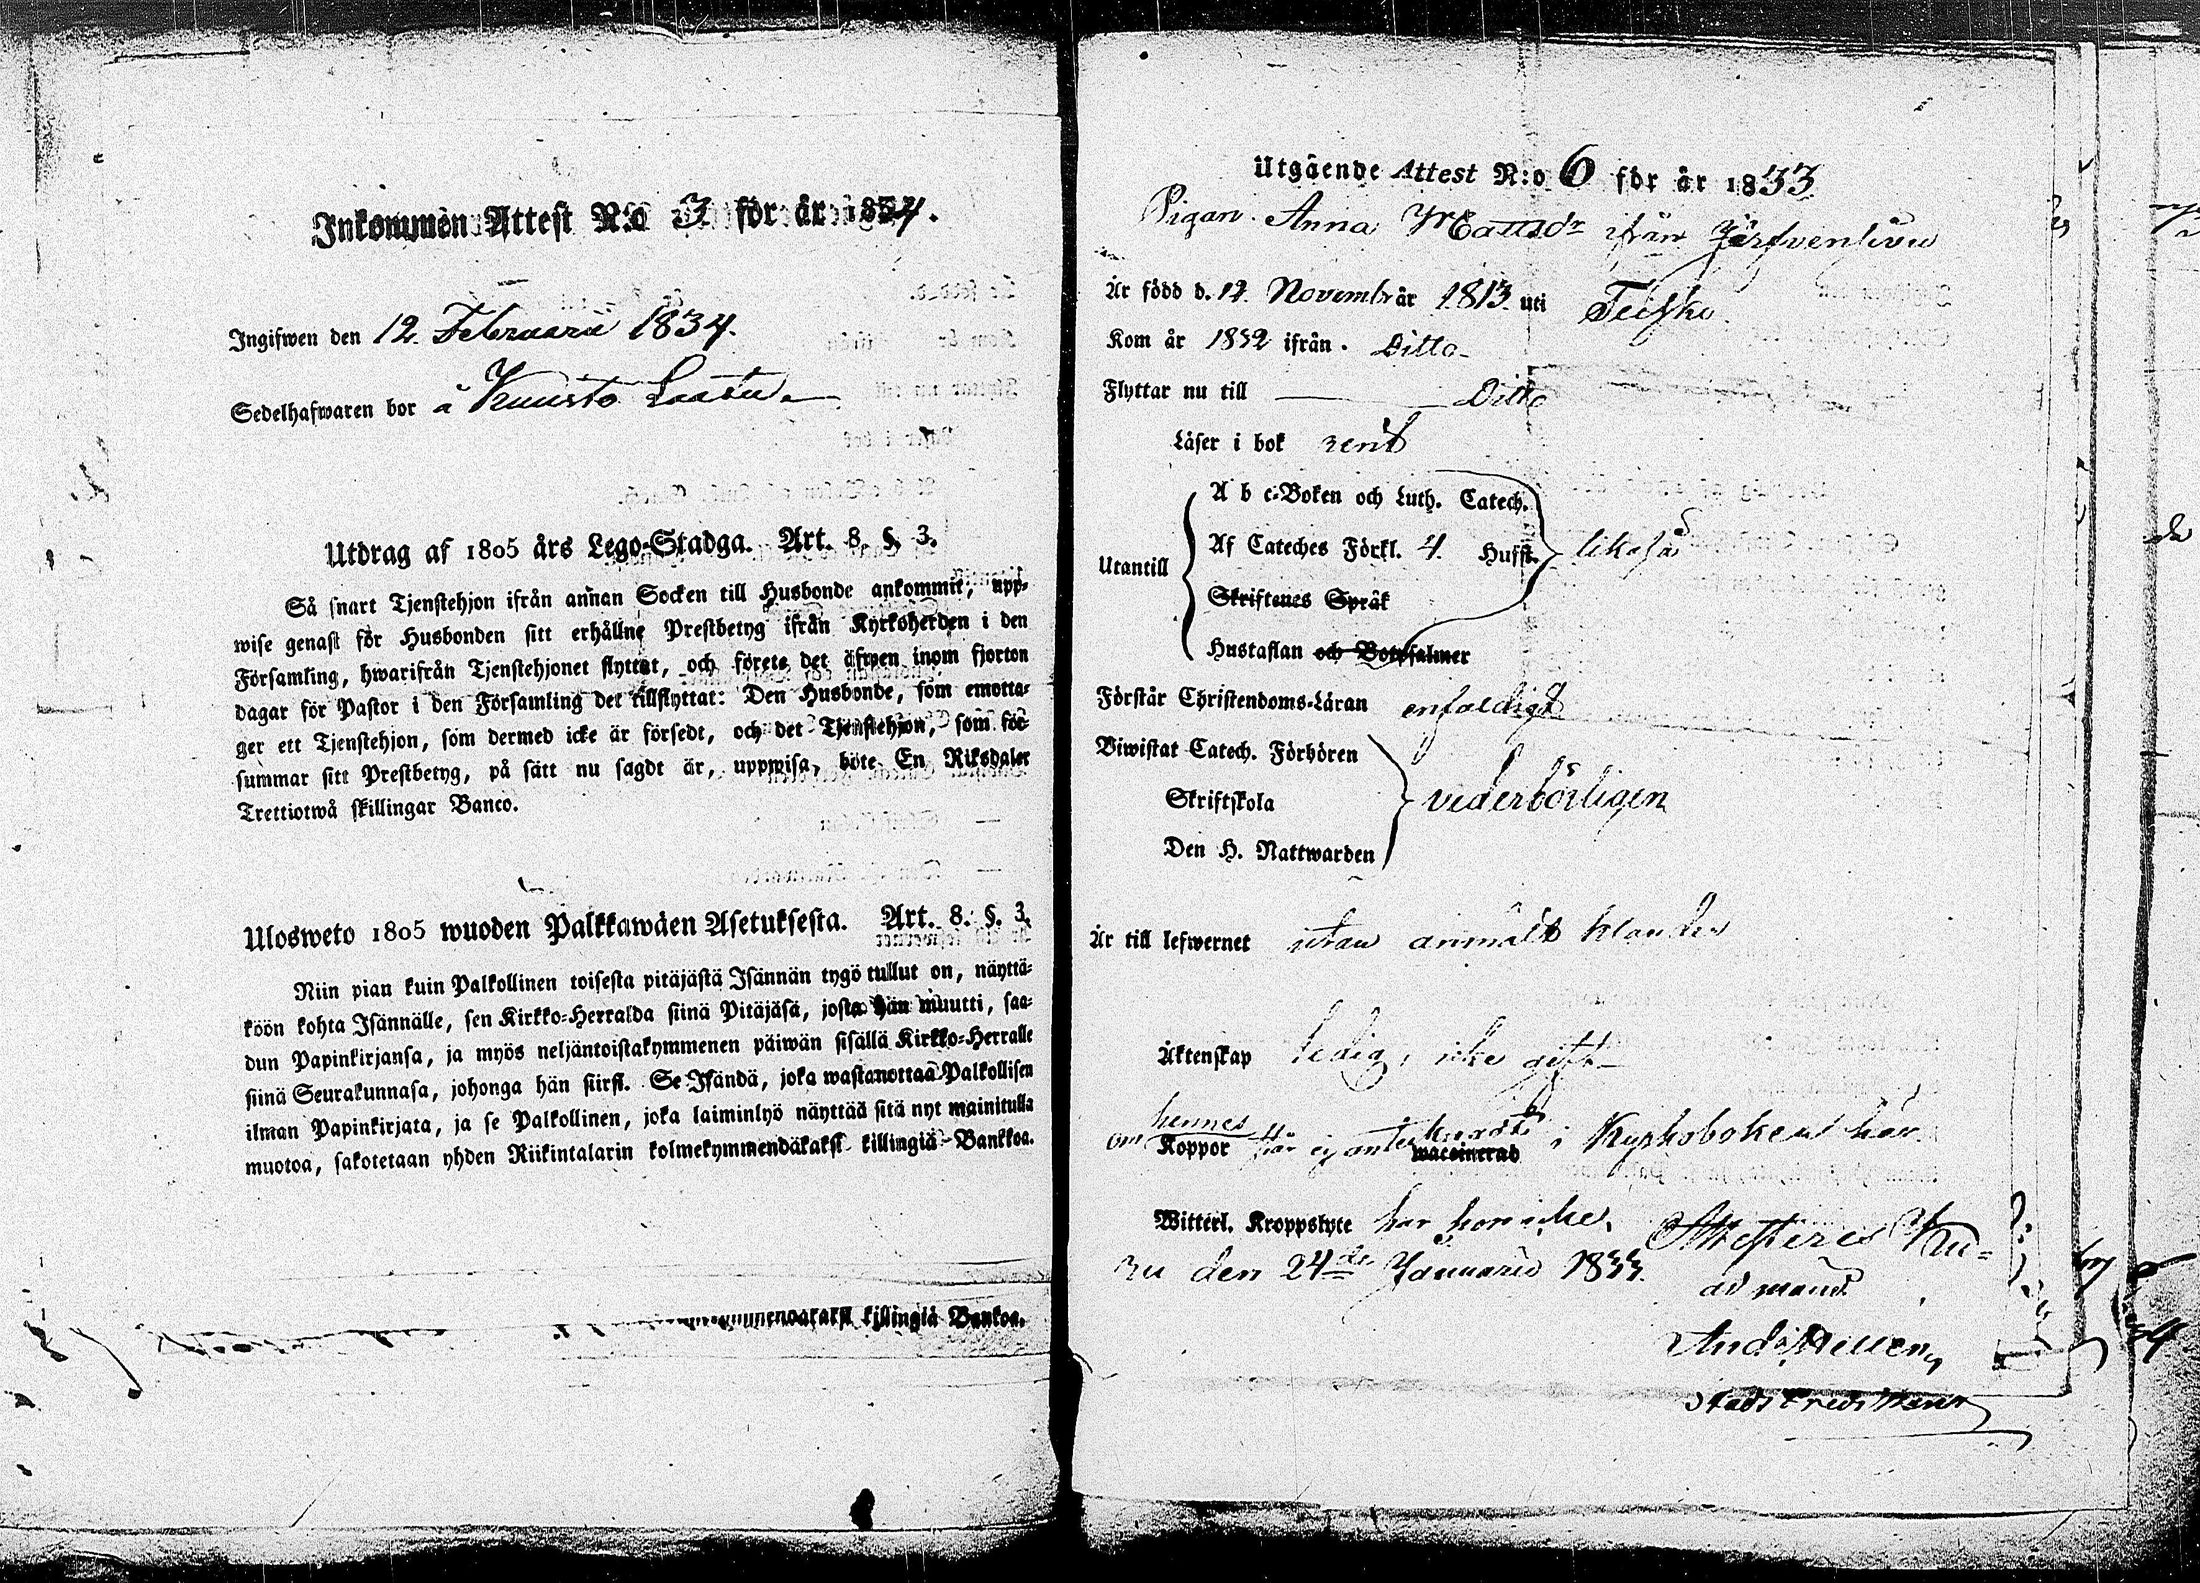 Inkommen Attest N:o 3 för år 1834.
Ingifwen den 12 Februarii 1834.
Sedelhafwaren bor å Kunisto Laasu
Utdrag af 1805 års Lego-Stadga. Art. 8. §. 3.
Så snart Tjenstehjon ifrån annan Socken till Husbonde ankommit, upp-
wise genast för Husbonden sitt erhållne Prestbetyg ifrån Kyrkoherden i den
Församling, hwarifrån Tjenstehjonet flyttat, och förete det äfwen inom fjorton
dagar för Pastor i den Församling det tillflyttat: Den Husbonde, som emotta-
ger ett Tjenstehjon, som dermed icke är försedt, och det Tjenstehjon, som för-
summar sitt Prestbetyg, på sätt nu sagdt är, uppwisa, böte En Riksdaler
Trettiotwå skillingar Banco.
Ulosweto 1805 wuoden Palkkawäen Asetuksesta. Art. 8. §. 3.
Niin pian kuin Palkollinen toisesta pitäjästä Isännän tygö tullut on, näyttä-
köön kohta Isännälle, sen Kirkko-Herralda siinä Pitäjäsä, josta hän muutti, saa-
dun Papinkirjansa, ja myös neljäntoistakymmenen päiwän sisällä Kirkko-Herralle
siinä Seurakunnasa, johonga hän siirsi. Se Isändä, joka wastanottaa Palkollisen
ilman Papinkirjata, ja se Palkollinen, joka laiminlyö näyttää sitä nyt mainitulla
muotoa, sakotetaan yhden Riikintalarin kolmekymmendäkaksi killingiä Bankkoa.
killingiä Bankoa.
Utgående Attest N:o 6 för år 1833
Pigan Anna Mattsdr ifrån Järfvensivu
Är född d. 12. Novembr år 1813 uti Teisko
Kom år 1832 ifrån. Ditto
Flyttar nu till Ditto
Läser i bok rent
A b c-Boken och Luth. Catech.
Utantill Af Cateches Förkl. 4. Hufst. likaså
Skriftenes Språk
Hustaflan och Botpsalmer
Förstår Christendoms-Läran enfaldigt
Biwistat Catech. Förhören
Skriftskola vederbörligen
Den H. Nattwarden
Är till lefwernet utan anmält klander
Äktenskap ledig, icke gift
om hennes Koppor står ej antecknadt waccinerad i Kyrkoboken här
Witterl. Kroppslyte har hon icke. Attesteres
den 24de Januarii 1833.